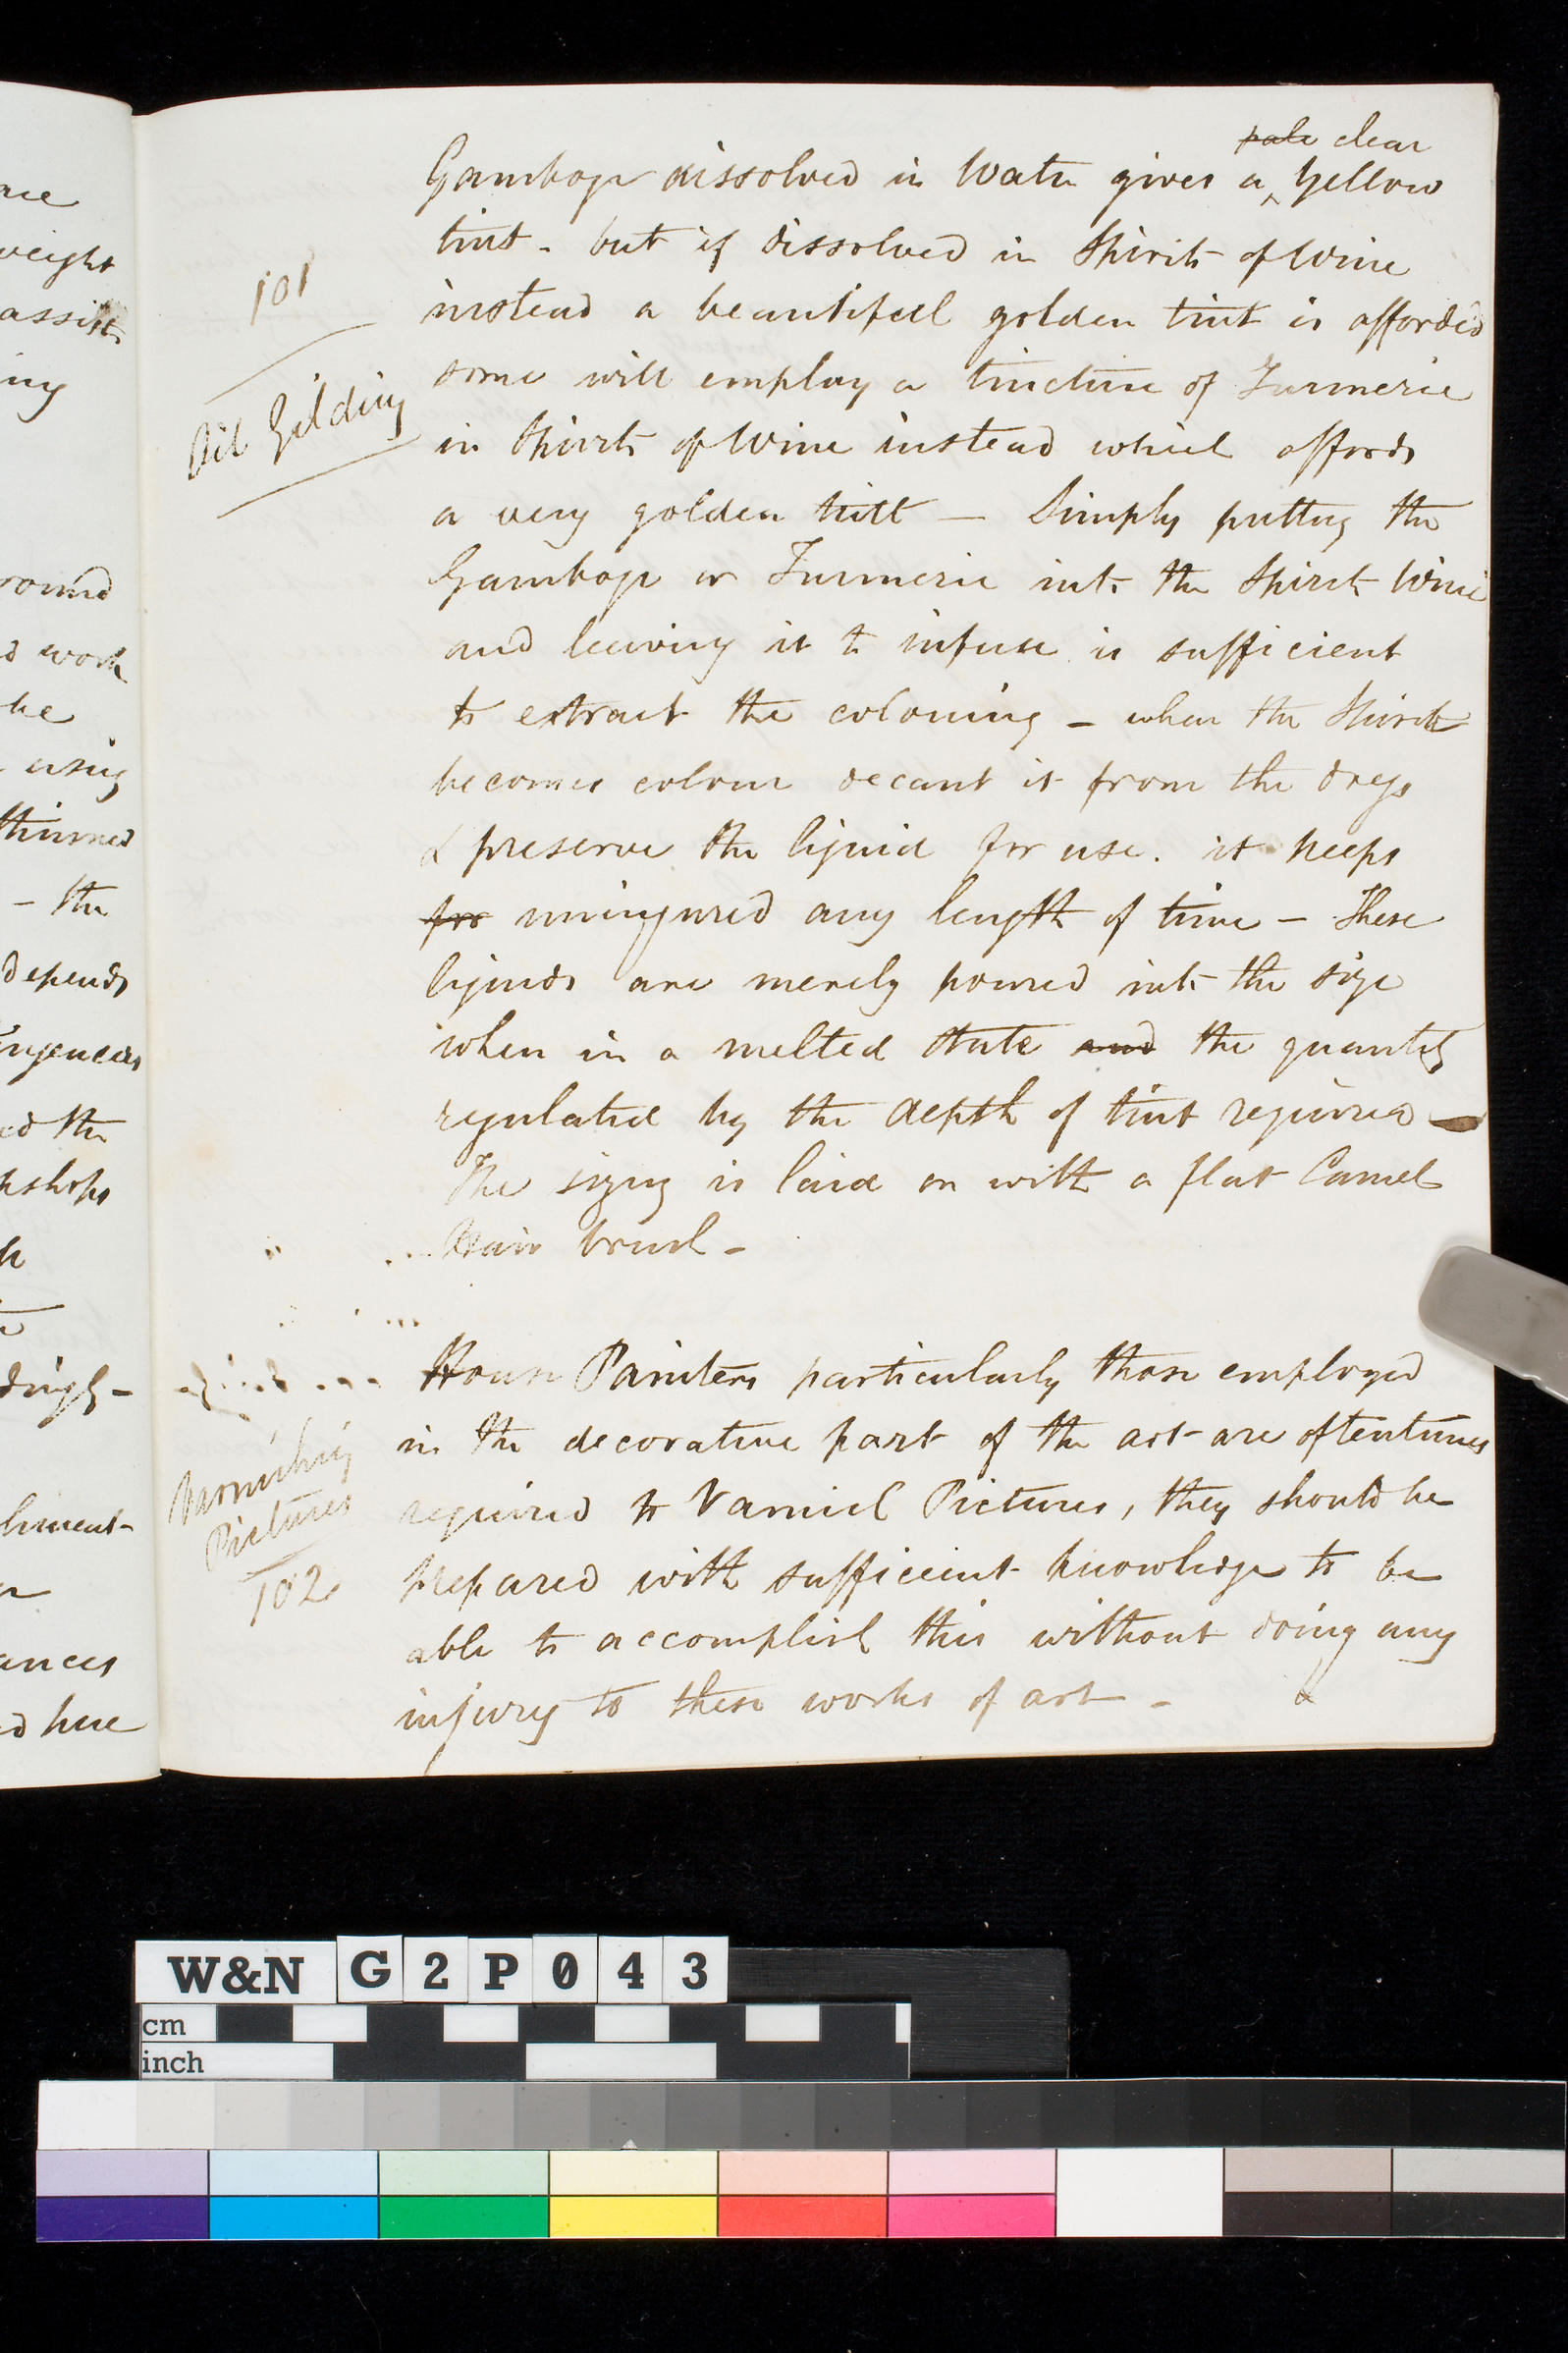 nce
weight
assist
ing
round
s work
be
using
thinned
- the
depends
ed the
kshops
dingly -
ances
ed here
101
Oil Gilding
pale clear
Gamboge dissolved in Water gives a ‸ Yellow
tint - but if dissolved in Spirits of Wine
instead a beautifull golden tint is afforded
some will employ a tincture of Turmeric
in Spirits of Wine instead which affords
a very golden tint — Simply putting the
Gamboge or Turmeric into the Spirits Wine
and leaving it to infuse is sufficient
to extract the colouring - when the Spirits
becomes colour decant it from the dregs
& preserve the liquid for use. it keeps
for uninjured any length of time - These
liquids are merely poured into the size
when in a melted state and the quantity
regulated by the depth of tint required -
The sizing is laid on with a flat Camel
Hair brush -
Varnishing
Pictures
102
House Painters particularly those employed
in the decorative part of the art are oftentimes
required to Varnish Pictures, they should be
prepared with sufficient knowledge to be
able to accomplish this without doing any
injury to these works of art -
W&N G2P043
cm
inch